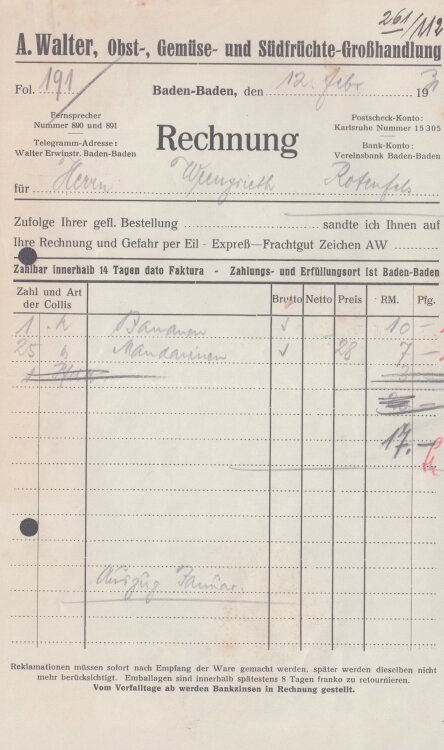 261/112
A. Walter, Obst-, Gemüse- und Südfrüchte-Großhandlung
Fol. 191 Baden-Baden, den 12. Febr 193
Fernsprecher
Nummer 890 und 891
Telegramm-Adresse:
Walter Erwinstr. Baden-Baden
Rechnung
Postscheck-Konto:
Karlsruhe Nummer 15 305
Bank-Konto:
Vereinsbank Baden-Baden
für Herrn Rotenfels
Zufolge Ihrer gefl. Bestellung sandte ich Ihnen auf
Ihre Rechnung und Gefahr per Eil - Expreß—Frachtgut Zeichen AW
Zahlbar innerhalb 14 Tagen dato Faktura - Zahlungs- und Erfüllungsort ist Baden-Baden
Zahl und Art der Collis Brutto Netto Preis RM. Pfg.
1 K Bananen ✓ 10 —
25 Mandarinen ✓ 28 7 —
17. —
Auszug Januar
Reklamationen müssen sofort nach Empfang der Ware gemacht werden, später werden dieselben nicht
mehr berücksichtigt. Emballagen sind innerhalb spätestens 8 Tagen franko zu retournieren.
Vom Verfalltage ab werden Bankzinsen in Rechnung gestellt.